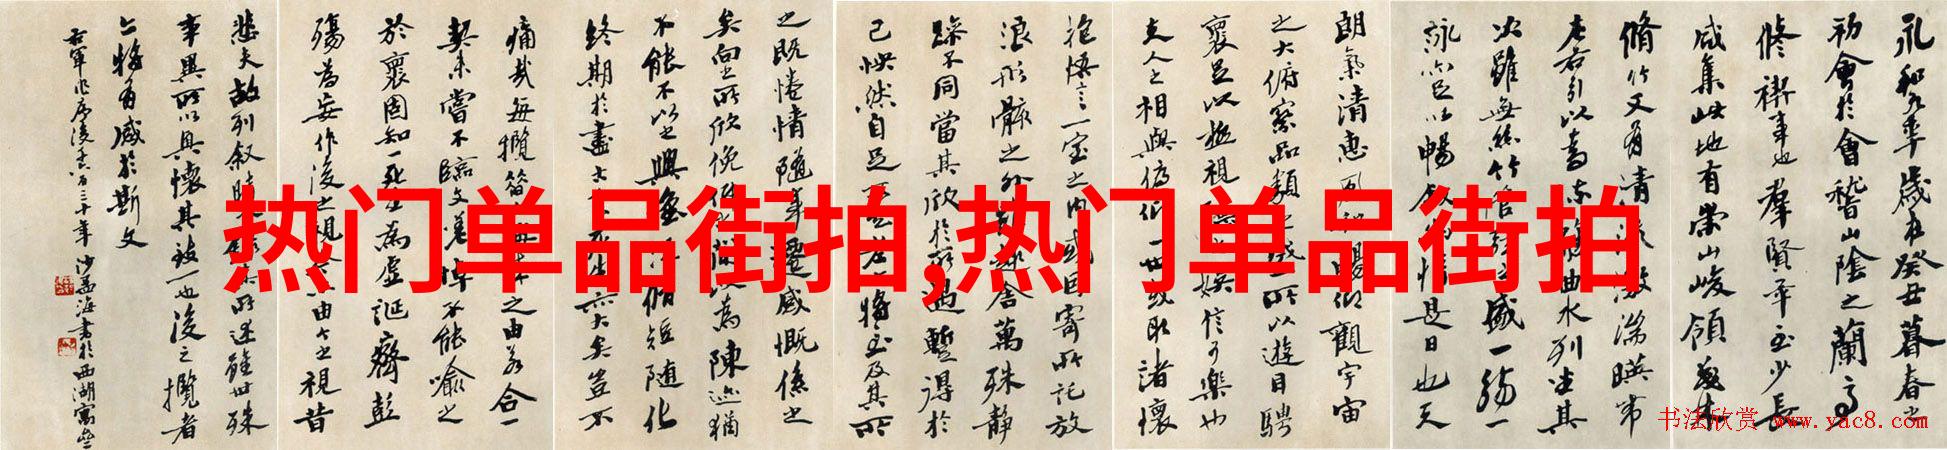 永和九年歲在癸丑暮春之
初會於會稽山陰之蘭亭
脩禊事也羣賢畢至少長
咸集此地有崇山峻領茂林
脩竹又有清流激湍暎帶
左右引以為流觴曲水列坐其
次雖無絲竹管弦之盛一觴一
詠亦足以暢敘幽情是日也天
朗氣清惠風和暢仰觀宇宙
之大俯察品類之盛所以遊目騁
襄足以極視聽之娛信可樂也
夫人之相與俯仰一世或取諸懷
抱悟言一室之內或因寄所託放
浪形骸之外雖趣舍萬殊靜
躁不同當其欣於所遇暫得於
己怏然自足不知老之將至及其所
之既惓情隨事遷感慨係之
矣向之所欣俛仰之間以為陳迹猶
不能不以之興懷況脩短隨化
終期於盡古人云死生亦大矣豈不
痛哉每攬昔人興感之由若合一
契未嘗不臨文嗟悼不能喻之
於襄固知一死生為虛誕齊彭
殤為妄作後之視今亦由今之視昔
悲夫故列叙時人錄其所述雖世殊
事異所以興懷其致一也後之攬者
亦將有感於斯文
右軍作序後千六百三十年 沙孟海書於西湖寓
热门单品街拍,热门单品街拍
书法欣赏 www.yac8.com